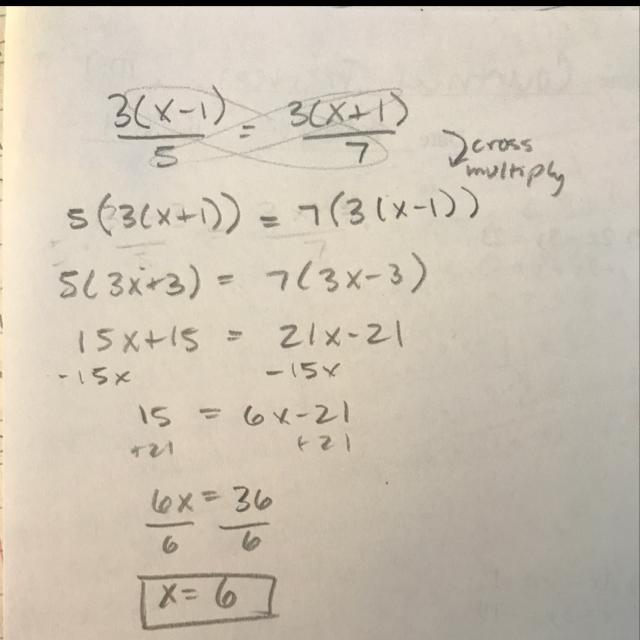 3(x-1)/5 = 3(x+1)/7
cross
multiply
5(3(x+1)) = 7(3(x-1))
5(3x+3) = 7(3x-3)
15x+15 = 21x-21
-15x -15x
15 = 6x-21
+21 +21
6x/6 = 36/6
x=6